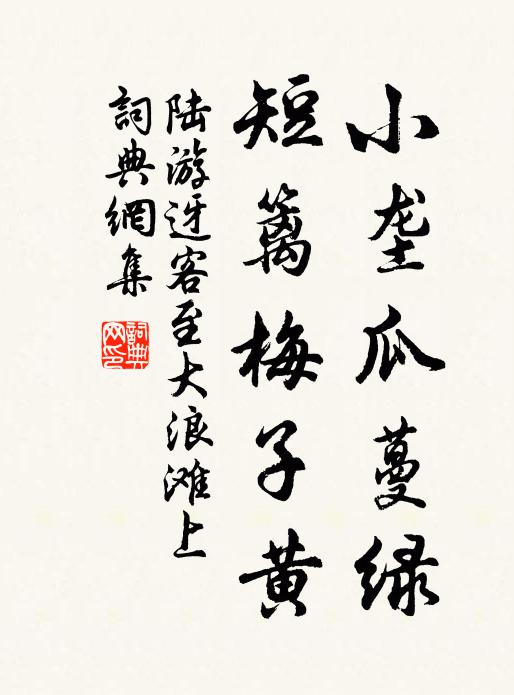 小垄瓜蔓绿
短篱梅子黄
陆游迓客至大浪滩上
詞典網集
詞典
网印